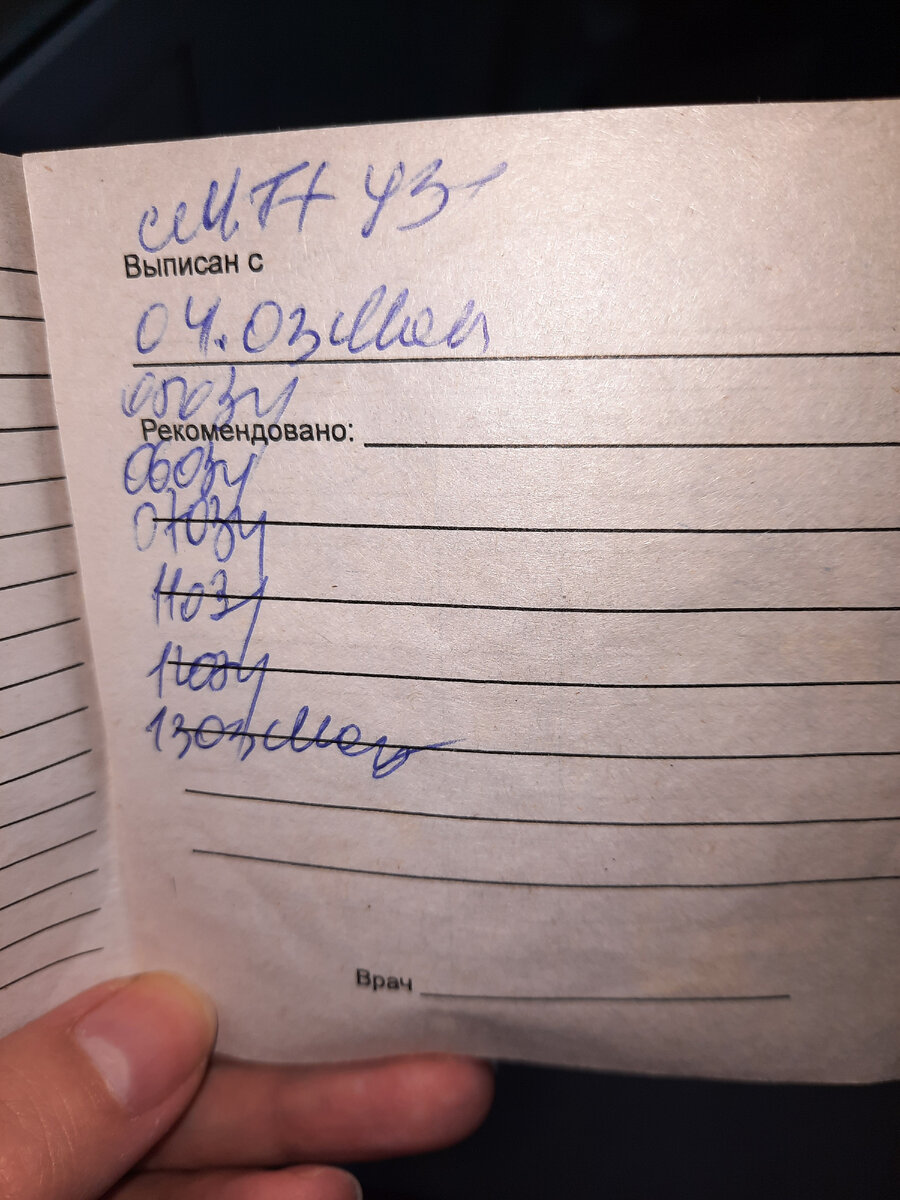 УЗТ
Выписан с
04.03
0503у
Рекомендовано:
0603у
0703у
1103у
1203у
1303
Врач